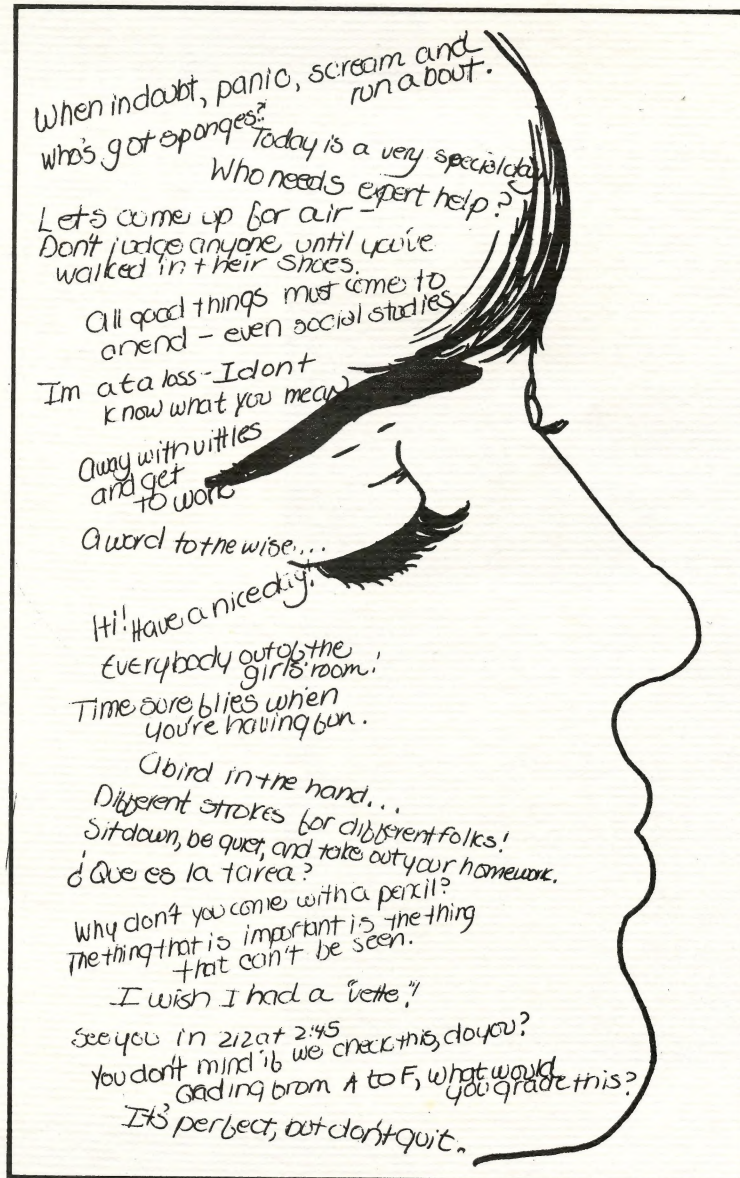 When in doubt, panic, scream and
run about.
Who's got sponges?
Today is a very special day
Who needs expert help?
Lets come up for air -
Don't judge anyone until you've
walked in their shoes.
All good things must come to
an end - even social studies
Im at a loss - I dont
know what you mean
Away with vittles
and get
to work
A word to the wise...
Hi! Have a nice day!
Everybody out of the
girls' room!
Time sure flies when
you're having fun.
A bird in the hand...
Different strokes for different folks!
Sit down, be quiet, and take out your homework.
¿Que es la tarea?
Why don't you come with a pencil?
The thing that is important is the thing
that can't be seen.
I wish I had a 'vette!"
See you in 212 at 2:45
You don't mind if we check this, do you?
Grading from A to F, what would
you grade this?
It's perfect, but don't quit.